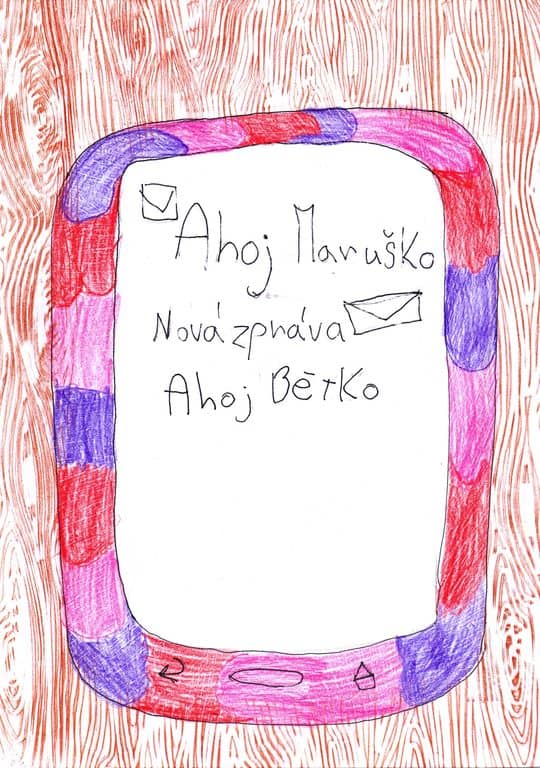 Ahoj Maruško
Nová zpráva
Ahoj Bětko